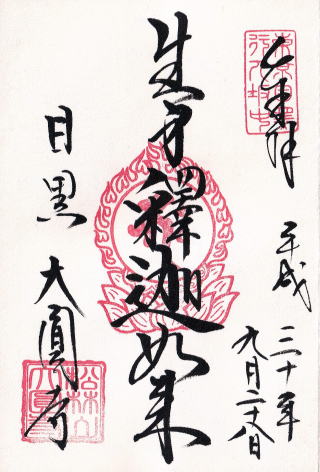 奉拝
平成三十年
九月二十八日
生身釋迦如来
目黒 大圓寺
松林山
大圓寺